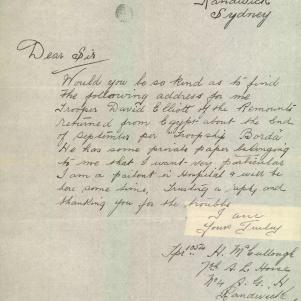 Randwick
Sydney
Dear Sir
Would you be so kind as to find
the following address for me
Trooper David Elliott of the Remounts
returned from Egypt about the End
of September per Troopship Borda
He has some private paper belonging
to me that I want very particular
I am a patient in Hospital & will be
here some time, Trusting a reply and
thanking you for the trouble
I am
Yours Truly
H. McCullough
7th A. L. Horse
No 4 A. G. H
Randwick